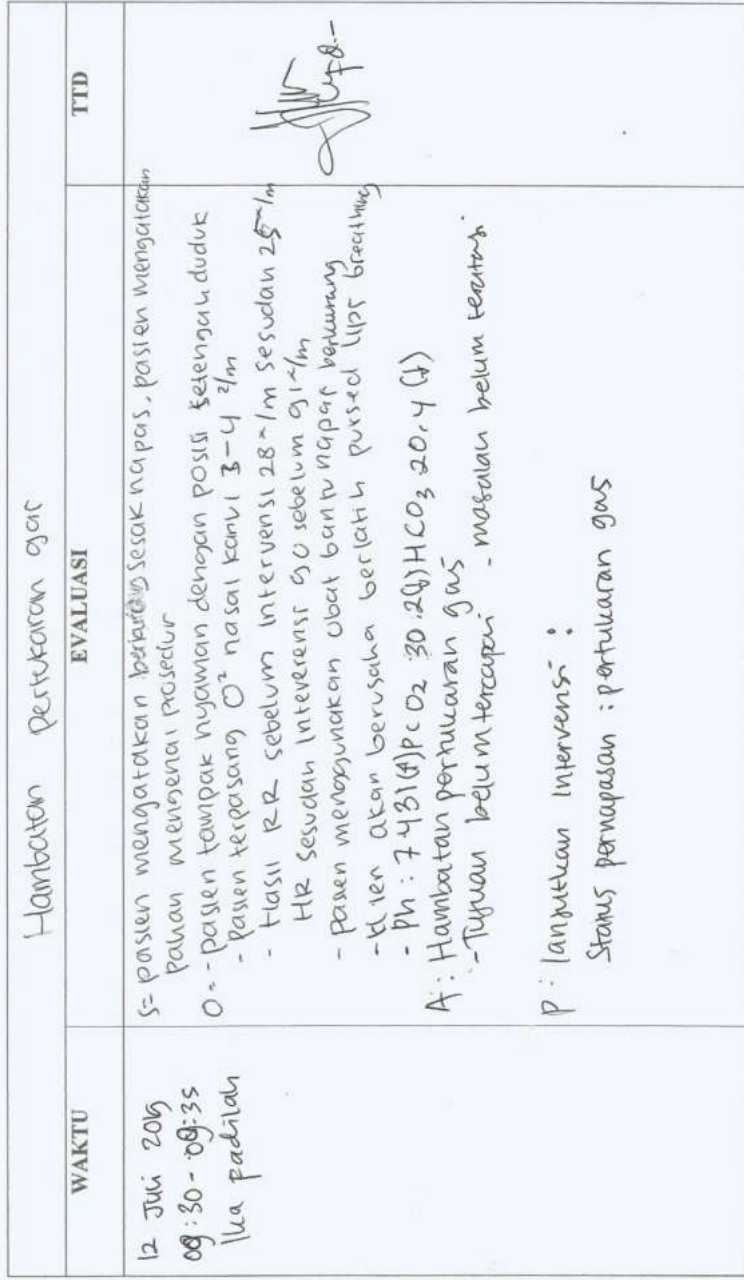 Hambatan Pertukaran gas
WAKTU
EVALUASI
TTD
12 Juli 2019
09:30 - 09:35
Ika padilah
S= pasien mengatakan berkurang sesak napas, pasien mengatakan
paham mengenai prosedur
O= - pasien tampak nyaman dengan posisi setengah duduk
- Pasien terpasang O² nasal kanul 3-4 l/m
- Hasil RR sebelum intervensi 28x/m sesudah 25x/m
HR sesudah Intverensi 90 sebelum 91x/m
- Pasien menggunakan obat bantu napas berkurang
- klien akan berusaha berlatih pursed lips breathing
- Ph : 7431(↑)PcO2 30.2(↓)HCO3 20.4 (↓)
A : Hambatan pertukaran gas
- Tujuan belum tercapai - masalah belum teratasi
P : lanjutkan Intervensi :
Status pernapasan : pertukaran gas